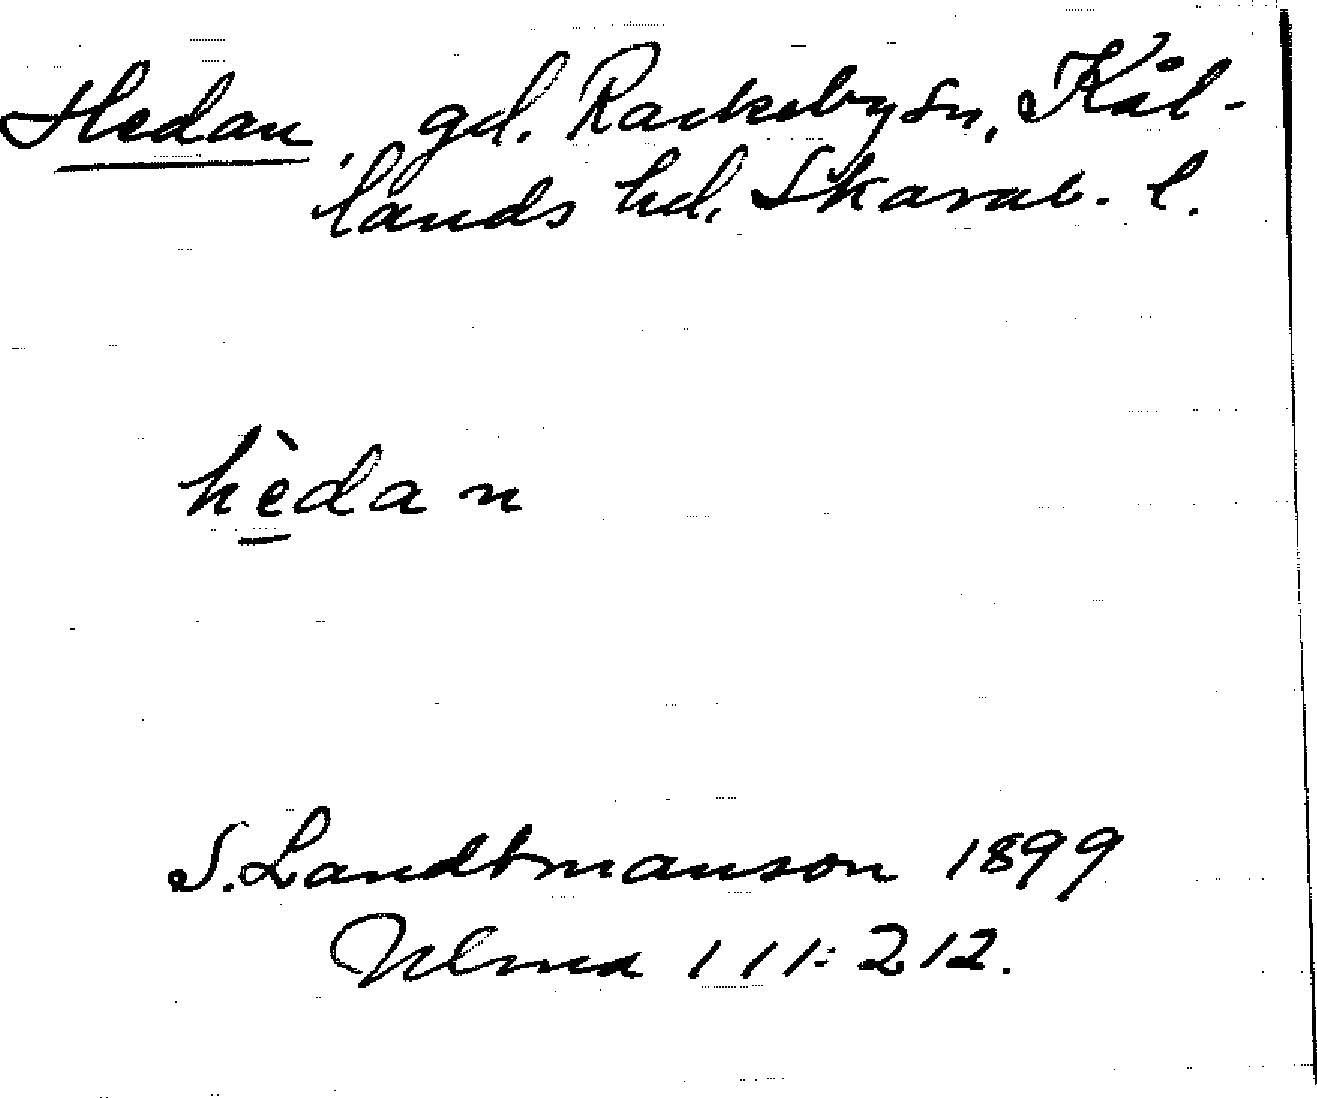 Hedan, gd. Rackeby sn, Kål-
lands hd. Skarab. l.
hèdan
S. Landtmanson 1899
Ulma 111:212.